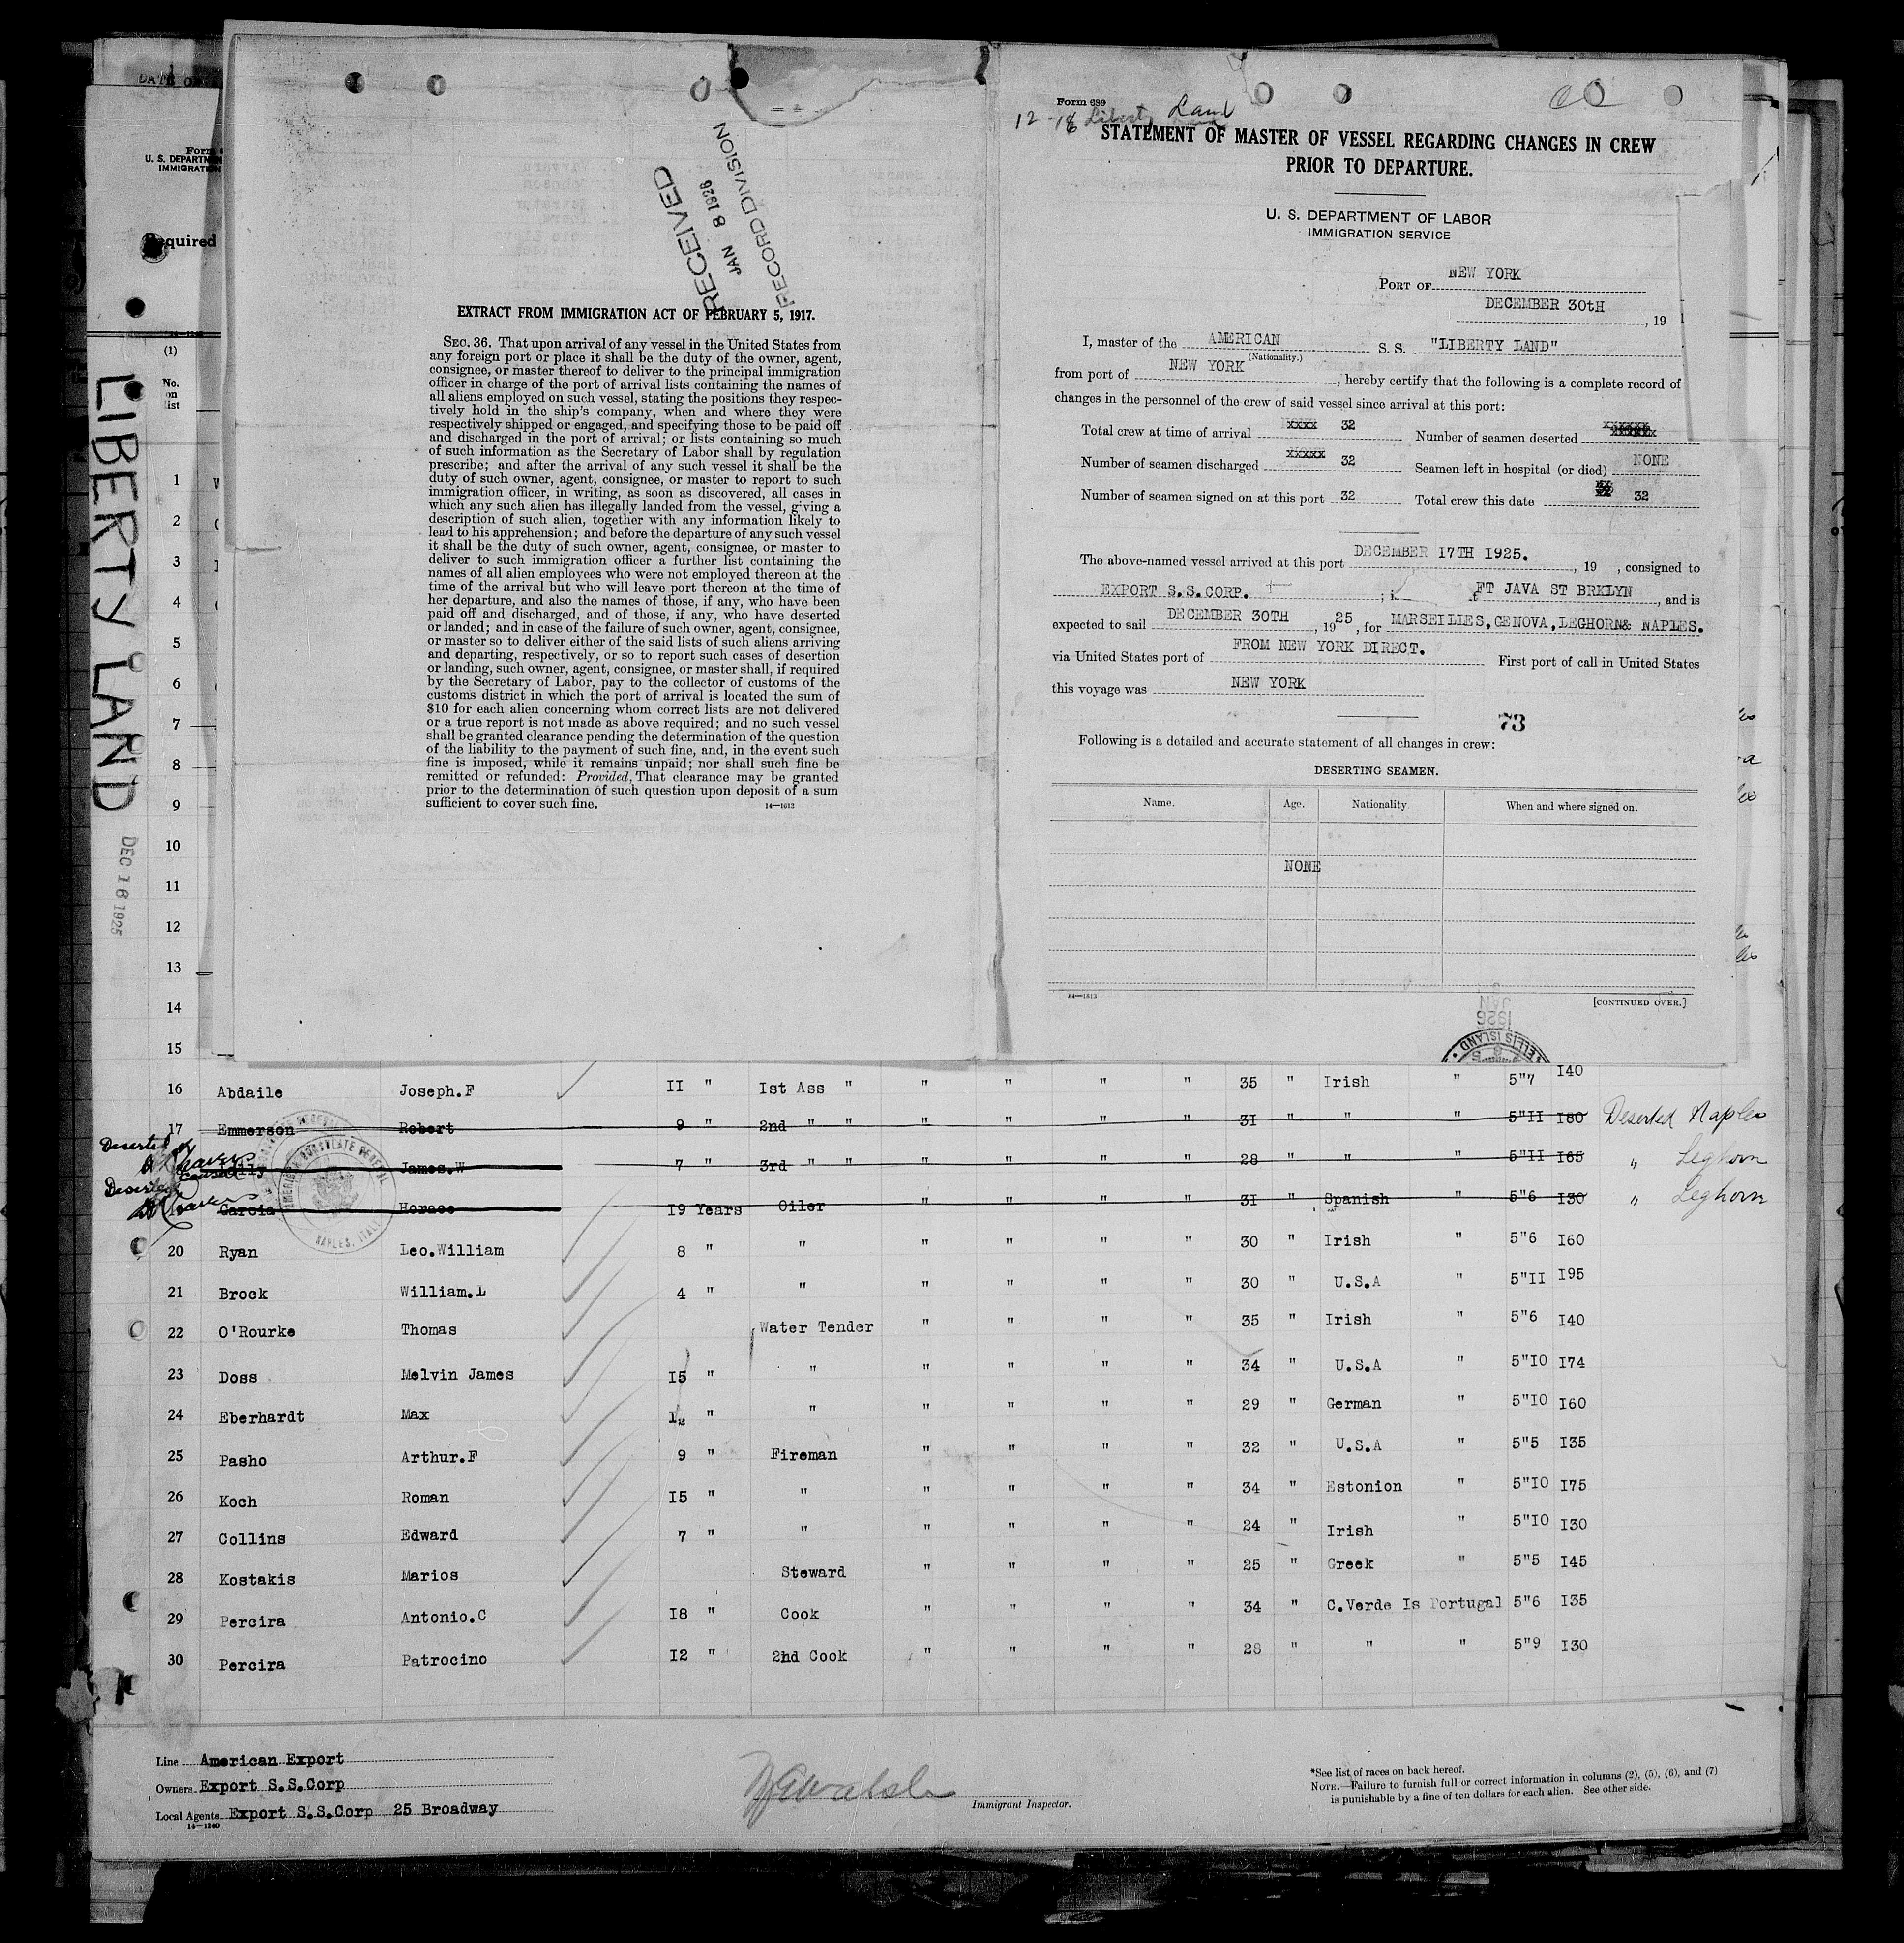 DATE OF
Form
U. S. DEPARTM
IMMIGRATION
Required
(1)
No.
on
list
LIBERTY LAND
DEC 16 1925
1
2
3
4
5
6
7
8
9
10
11
12
13
14
15
RECEIVED
JAN 8 1926
RECORD DIVISION
EXTRACT FROM IMMIGRATION ACT OF FEBRUARY 5, 1917.
SEC. 36. That upon arrival of any vessel in the United States from
any foreign port or place it shall be the duty of the owner, agent,
consignee, or master thereof to deliver to the principal immigration
officer in charge of the port of arrival lists containing the names of
all aliens employed on such vessel, stating the positions they respec-
tively hold in the ship's company, when and where they were
respectively shipped or engaged, and specifying those to be paid off
and discharged in the port of arrival; or lists containing so much
of such information as the Secretary of Labor shall by regulation
prescribe; and after the arrival of any such vessel it shall be the
duty of such owner, agent, consignee, or master to report to such
immigration officer, in writing, as soon as discovered, all cases in
which any such alien has illegally landed from the vessel, giving a
description of such alien, together with any information likely to
lead to his apprehension; and before the departure of any such vessel
it shall be the duty of such owner, agent, consignee, or master to
deliver to such immigration officer a further list containing the
names of all alien employees who were not employed thereon at the
time of the arrival but who will leave port thereon at the time of
her departure, and also the names of those, if any, who have been
paid off and discharged, and of those, if any, who have deserted
or landed; and in case of the failure of such owner, agent, consignee,
or master so to deliver either of the said lists of such aliens arriving
and departing, respectively, or so to report such cases of desertion
or landing, such owner, agent, consignee, or master shall, if required
by the Secretary of Labor, pay to the collector of customs of the
customs district in which the port of arrival is located the sum of
$10 for each alien concerning whom correct lists are not delivered
or a true report is not made as above required; and no such vessel
shall be granted clearance pending the determination of the question
of the liability to the payment of such fine, and, in the event such
fine is imposed, while it remains unpaid; nor shall such fine be
remitted or refunded: Provided, That clearance may be granted
prior to the determination of such question upon deposit of a sum
sufficient to cover such fine. 14—1613
Form 689
12-18 Liberty Land
STATEMENT OF MASTER OF VESSEL REGARDING CHANGES IN CREW
PRIOR TO DEPARTURE.
U. S. DEPARTMENT OF LABOR
IMMIGRATION SERVICE
PORT OF NEW YORK
DECEMBER 30tH, 19
I, master of the AMERICAN S. S. "LIBERTY LAND"
(Nationality.)
from port of NEW YORK, hereby certify that the following is a complete record of
changes in the personnel of the crew of said vessel since arrival at this port:
Total crew at time of arrival xxxx 32 Number of seamen deserted
Number of seamen discharged xxxxx 32 Seamen left in hospital (or died) NONE
Number of seamen signed on at this port 32 Total crew this date 32
The above-named vessel arrived at this port DECEMBER 17TH 1925., 19 , consigned to
EXPORT S.S.CORP. ; FT JAVA ST BRKLYN, and is
expected to sail DECEMBER 30TH, 1925, for MARSEILLES,GENOVA,LEGHORN& NAPLES.
via United States port of FROM NEW YORK DIRECT. First port of call in United States
this voyage was NEW YORK
73
Following is a detailed and accurate statement of all changes in crew:
DESERTING SEAMEN.
Name. Age. Nationality. When and where signed on.
NONE
14—1613 [CONTINUED OVER.]
JAN
1926
ELLIS ISLAND
16 Abdaile Joseph.F II " Ist Ass " " " " " 35 " Irish " 5"7 I40
17 Emmerson Robert 9 " 2nd " " " " " " 31 " " " 5"II I80 Deserted Naples
Deserted
James.W 7 " 3rd " " " " " " 28 " " " 5"II I65 " Leghorn
Deserted
Garcia Horace I9 Years Oiler " " " " 31 " Spanish " 5"6 I30 " Leghorn
AMERICAN CONSULATE GENERAL
NAPLES, ITALY
20 Ryan Leo.William 8 " " " " " " 30 " Irish " 5"6 I60
21 Brock William.L 4 " " " " " " 30 " U.S.A " 5"II I95
22 O'Rourke Thomas Water Tender " " " " 35 " Irish " 5"6 I40
23 Doss Melvin James I5 " " " " " " 34 " U.S.A " 5"IO I74
24 Eberhardt Max 12 " " " " " " 29 " German " 5"IO I60
25 Pasho Arthur.F 9 " Fireman " " " " 32 " U.S.A " 5"5 I35
26 Koch Roman I5 " " " " " " 34 " Estonion " 5"IO I75
27 Collins Edward 7 " " " " " " 24 " Irish " 5"IO I30
28 Kostakis Marios Steward " " " " 25 " Greek " 5"5 I45
29 Percira Antonio.C I8 " Cook " " " " 34 " C.Verde Is Portugal 5"6 I35
30 Percira Patrocino I2 " 2nd Cook " " " " 28 " " " 5"9 I30
Line American Export
Owners Export S.S.Corp
Local Agents Export S.S.Corp 25 Broadway
14—1240
Immigrant Inspector.
*See list of races on back hereof.
NOTE.—Failure to furnish full or correct information in columns (2), (5), (6), and (7)
is punishable by a fine of ten dollars for each alien. See other side.